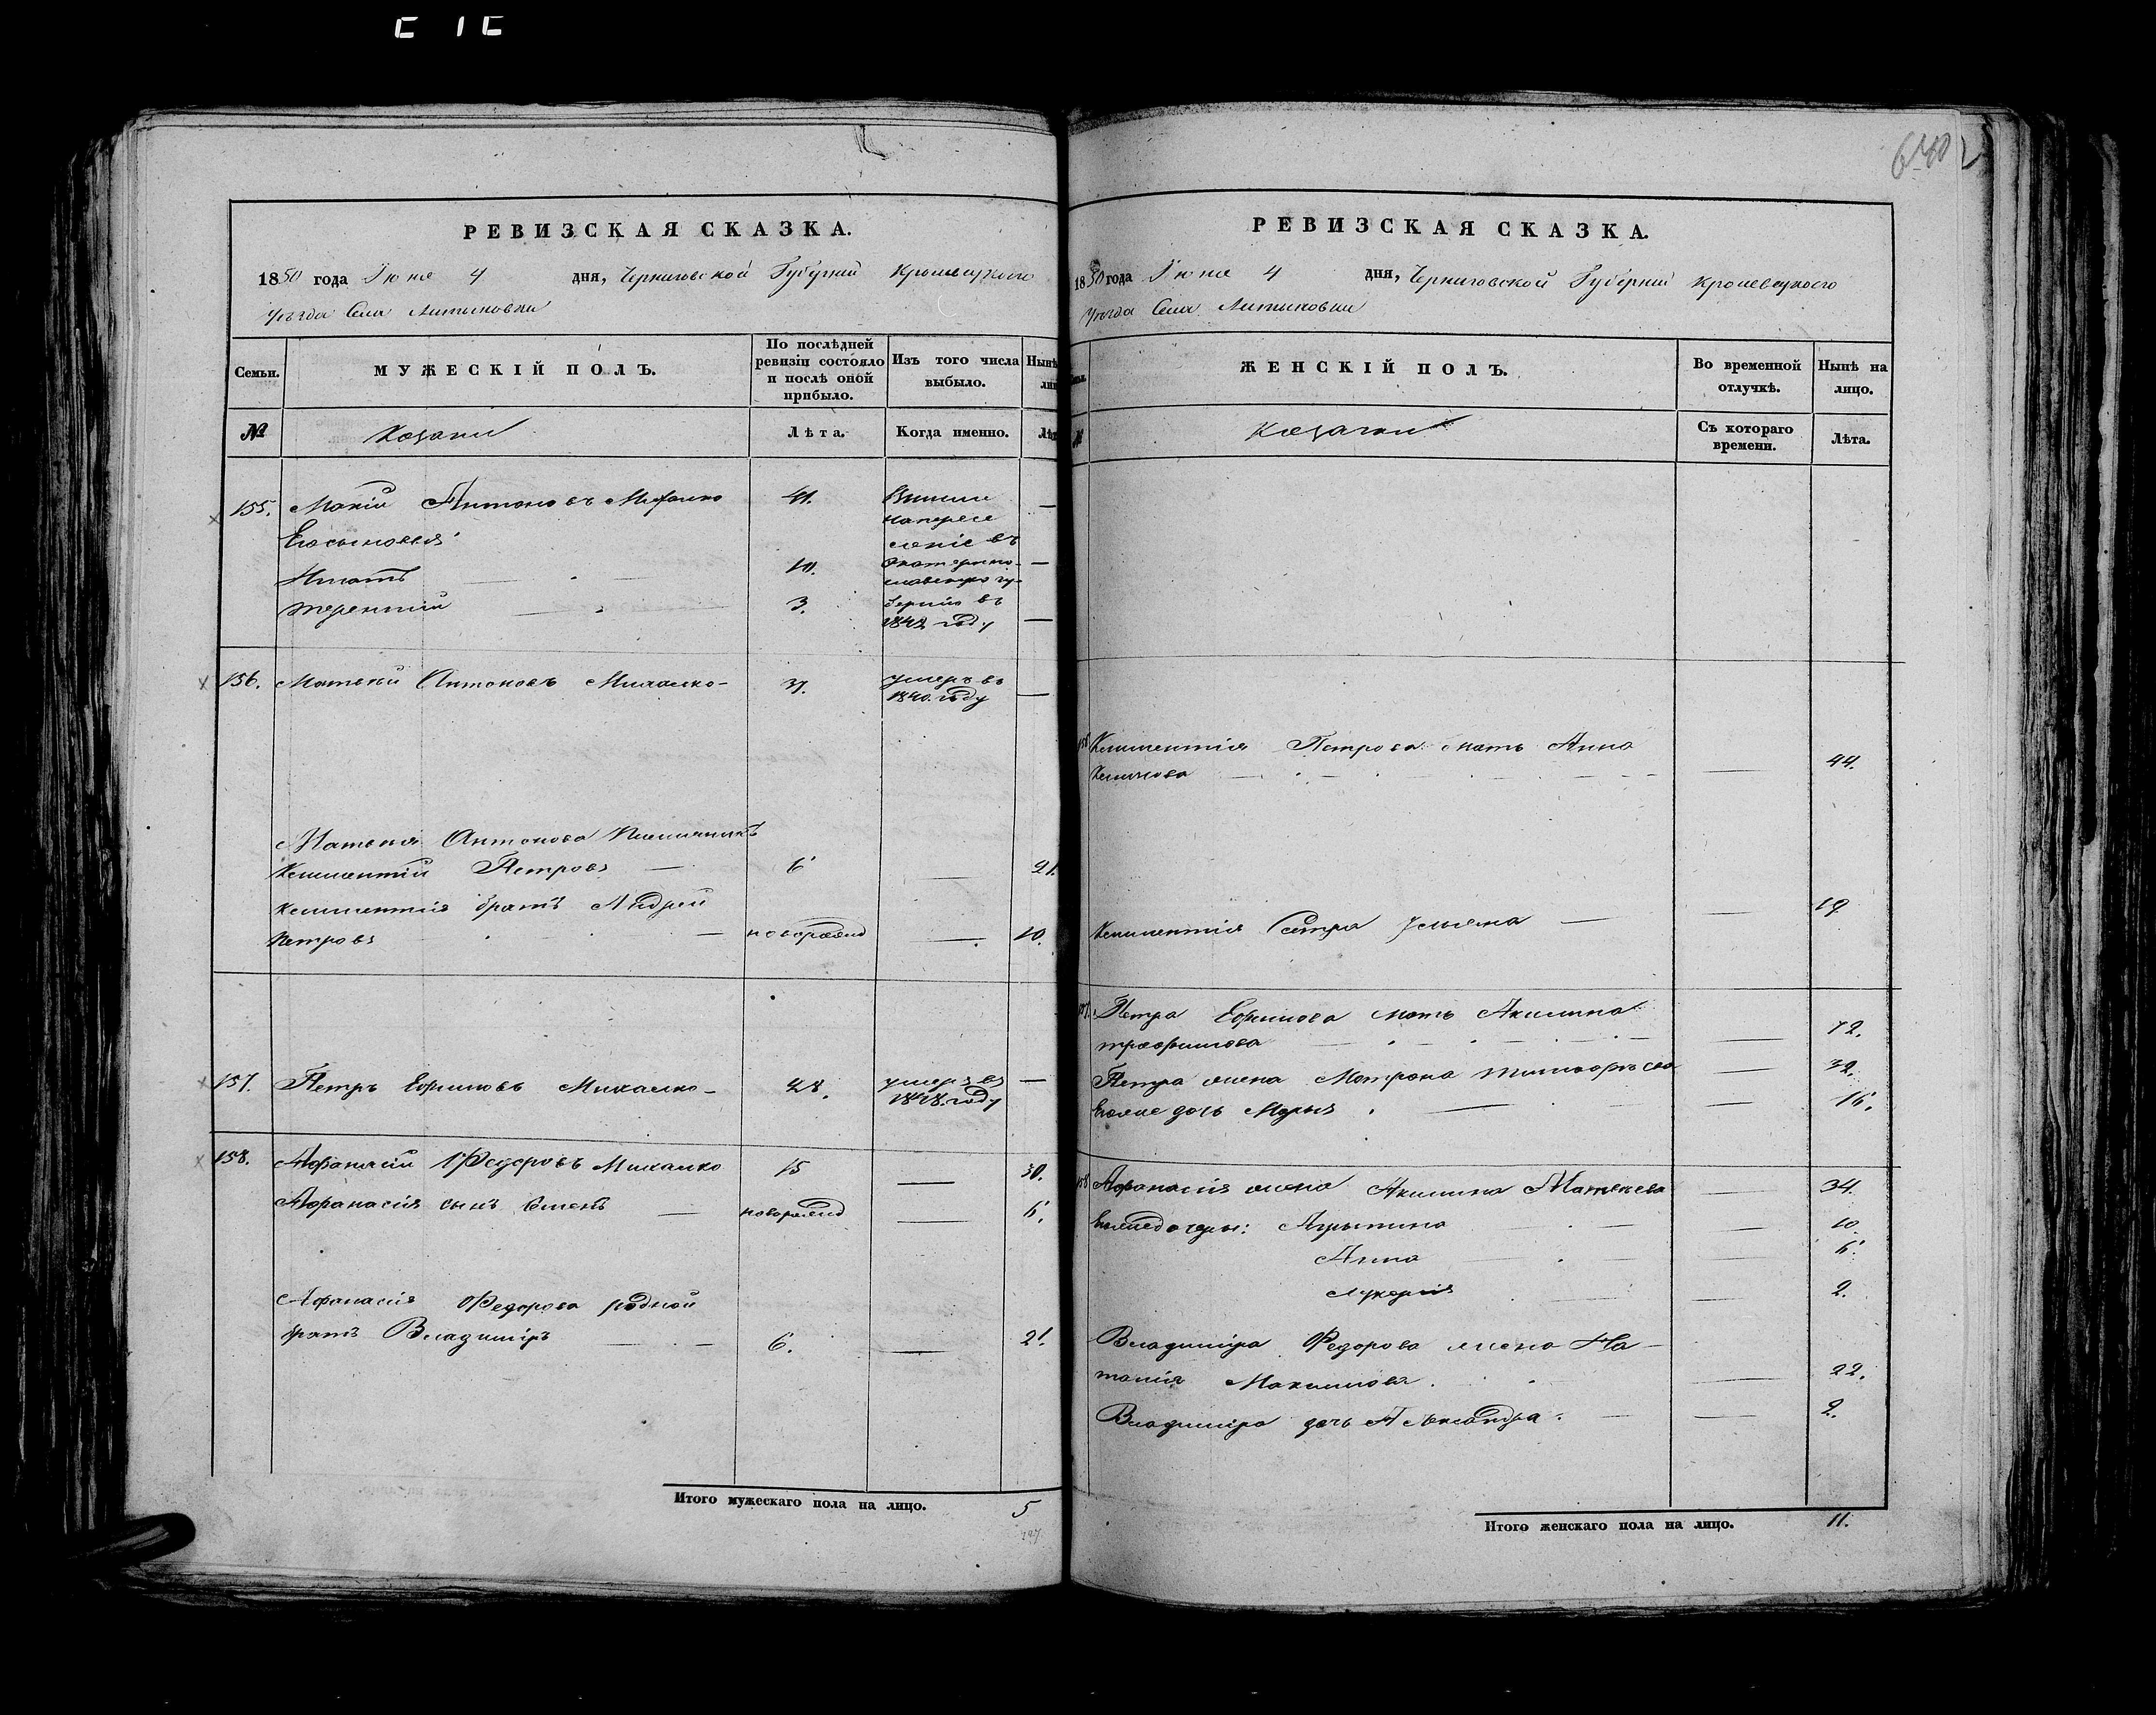 РЕВИЗСКАЯ СКАЗКА.
1850 года Июня 4 дня, Черниговской Губерніи Кролевецкого
Уѣзда Села Литвиновки
Семьи.
МУЖЕСКІЙ ПОЛЪ.
По послѣдней ревизіи состояло и послѣ оной прибыло.
Изъ того числа выбыло.
Нынѣ
№
Козаки
Лѣта.
Когда именно.
155. Антоновъ 41. —
Его сыновья
Игнатъ 10. —
Терентій 3. —
на пересе
леніе въ
Екатерино-
славскую гу-
бернію въ
1842 году
156. Матвѣй Антоновъ Михалко 37. умеръ въ —
1840. году
Матвѣя Антонова племянникъ
Климентій Петровъ — 6 — 21.
Климентія братъ Андрей
Петровъ — новорожд — 10.
157. Петръ Ефимовъ Михалко 28. умеръ въ —
1848. году
158. Афанасій Федоровъ Михалко 15 — 30.
Афанасія сынъ — новорожд — 6.
Афанасія Федорова родной
братъ Владиміръ — 6. — 21.
Итого мужескаго пола на лицо. 5
РЕВИЗСКАЯ СКАЗКА.
1850 года Июня 4 дня, Черниговской Губерніи Кролевецкого
Уѣзда Села Литвиновки
ЖЕНСКІЙ ПОЛЪ.
Во временной отлучкѣ.
Нынѣ на лицо.
№
Козачки
Съ котораго времени.
Лѣта.
156 Климентія Петрова мать Анна
— 44.
Климентія Сестра Ульяна — — 19
157. Петра Ефимова мать Акилина
Трофимова — 72.
Петра жена Матрона — 32.
Его же дочь Марья — 16.
158 Афанасія жена Акилина Матвѣева — 34.
Его же дочери: — 10
Анна — 6.
Лукерія — 2.
Владиміра Федорова жена На-
талія Максимова. — 22.
Владиміра дочь Александра. — 2.
Итого женскаго пола на лицо. 11.